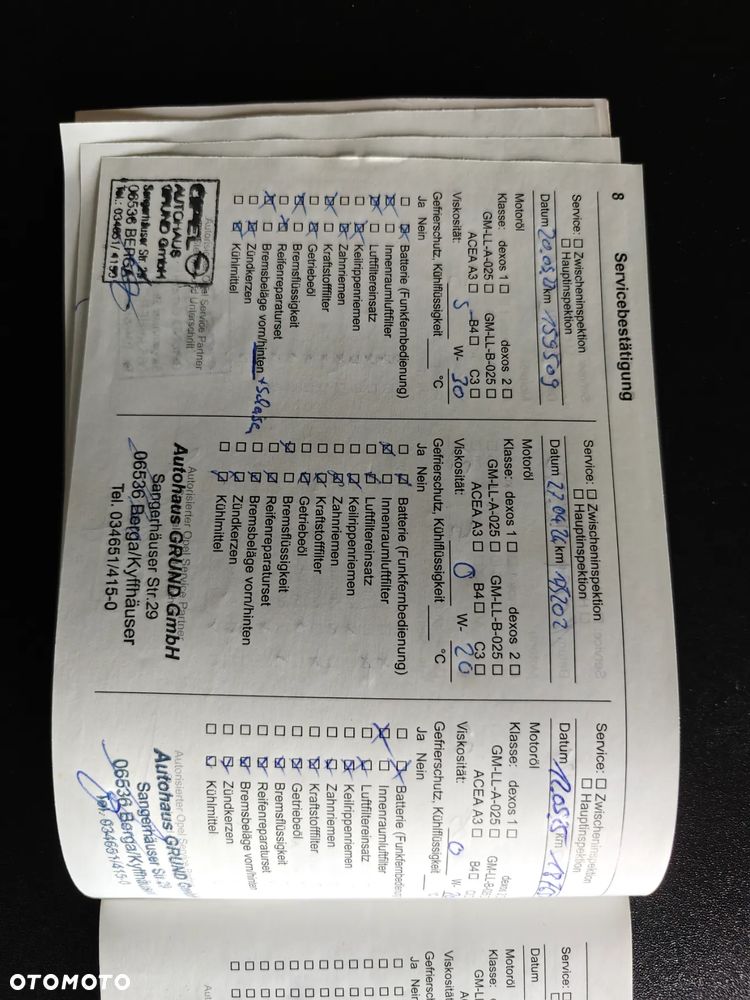 8
Servicebestätigung
Service: ☐ Zwischeninspektion
☐ Hauptinspektion
Datum 20.05. km 159509
Motoröl
Klasse: dexos 1 ☐ dexos 2 ☐
GM-LL-A-025 ☐ GM-LL-B-025 ☐
ACEA A3 ☐ B4 ☐ C3 ☐
Viskosität: 5 W- 30
Gefrierschutz, Kühlflüssigkeit °C
Ja Nein
Batterie (Funkfernbedienung)
Innenraumluftfilter
Luftfiltereinsatz
Keilrippenriemen
Zahnriemen
Kraftstofffilter
Getriebeöl
Bremsflüssigkeit
Reifenreparaturset
Bremsbeläge vorn/hinten
Zündkerzen
Kühlmittel
Service Partner
Unterschrift
OPEL
AUTOHAUS
GRUND GmbH
Sangerhäuser Str.
06536 BERGA
Tel.: 034651/
Service: ☐ Zwischeninspektion
☐ Hauptinspektion
Datum 27.04. km
Motoröl
Klasse: dexos 1 ☐ dexos 2 ☐
GM-LL-A-025 ☐ GM-LL-B-025 ☐
ACEA A3 ☐ B4 ☐ C3 ☐
Viskosität: 0 W- 20
Gefrierschutz, Kühlflüssigkeit °C
Ja Nein
Batterie (Funkfernbedienung)
Innenraumluftfilter
Luftfiltereinsatz
Keilrippenriemen
Zahnriemen
Kraftstofffilter
Getriebeöl
Bremsflüssigkeit
Reifenreparaturset
Bremsbeläge vorn/hinten
Zündkerzen
Kühlmittel
Autorisierter Opel Service Partner
Autohaus GRUND GmbH
Sangerhäuser Str.29
06536 Berga/Kyffhäuser
Tel. 034651/415-0
Service: ☐ Zwischeninspektion
☐ Hauptinspektion
Datum km
Motoröl
Klasse: dexos 1 ☐ dexos
GM-LL-A-025 ☐ GM-LL-B-025
ACEA A3 ☐ B4 ☐
Viskosität: 0 W-
Gefrierschutz, Kühlflüssigkeit
Ja Nein
Batterie (Funkfernbedienung
Innenraumluftfilter
Luftfiltereinsatz
Keilrippenriemen
Zahnriemen
Kraftstofffilter
Getriebeöl
Bremsflüssigkeit
Reifenreparaturset
Bremsbeläge vorn/hinten
Zündkerzen
Kühlmittel
Autorisierter Opel
Autohaus GRUND
Sangerhäuser Str. 29
06536 Berga/Kyffhäuser
Tel. 034651/415-0
Service: ☐
☐
Datum
Motoröl
Klasse: dexos
GM-LL
ACE
Viskosität:
Gefriersch
Ja Nein
OTOMOTO